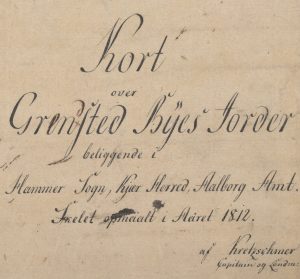 Kort
over
Grindsted Byes Jorder
beliggende i
Hammer Sogn, Kjær Herred, Aalborg Amt.
Skelet opmaalt i Aaret 1812.
af Kretzschmer
Capitain og Landm.